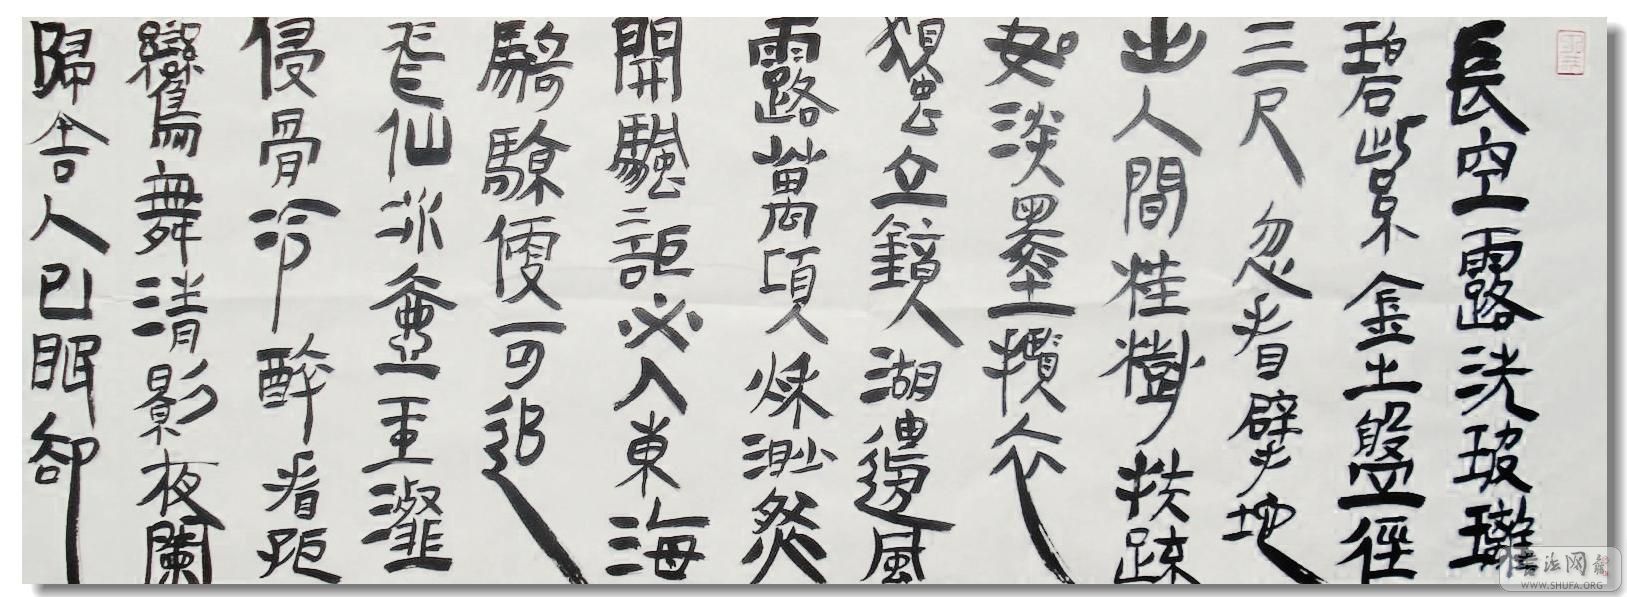 長空露洗玻瓈
碧紫不金土盤徑
三尺忽看擘地
出人間桂樹扶疎
如淡墨攬衣
獨立鏡人湖邊風
露萬頃人秋渺然
開颿詎必入東海
騎便可追
飛仙冰壺玉瀣
侵骨冷醉看
鸞舞清影夜闌
歸舍人已眠却
書法网
WWW.SHUFA.ORG